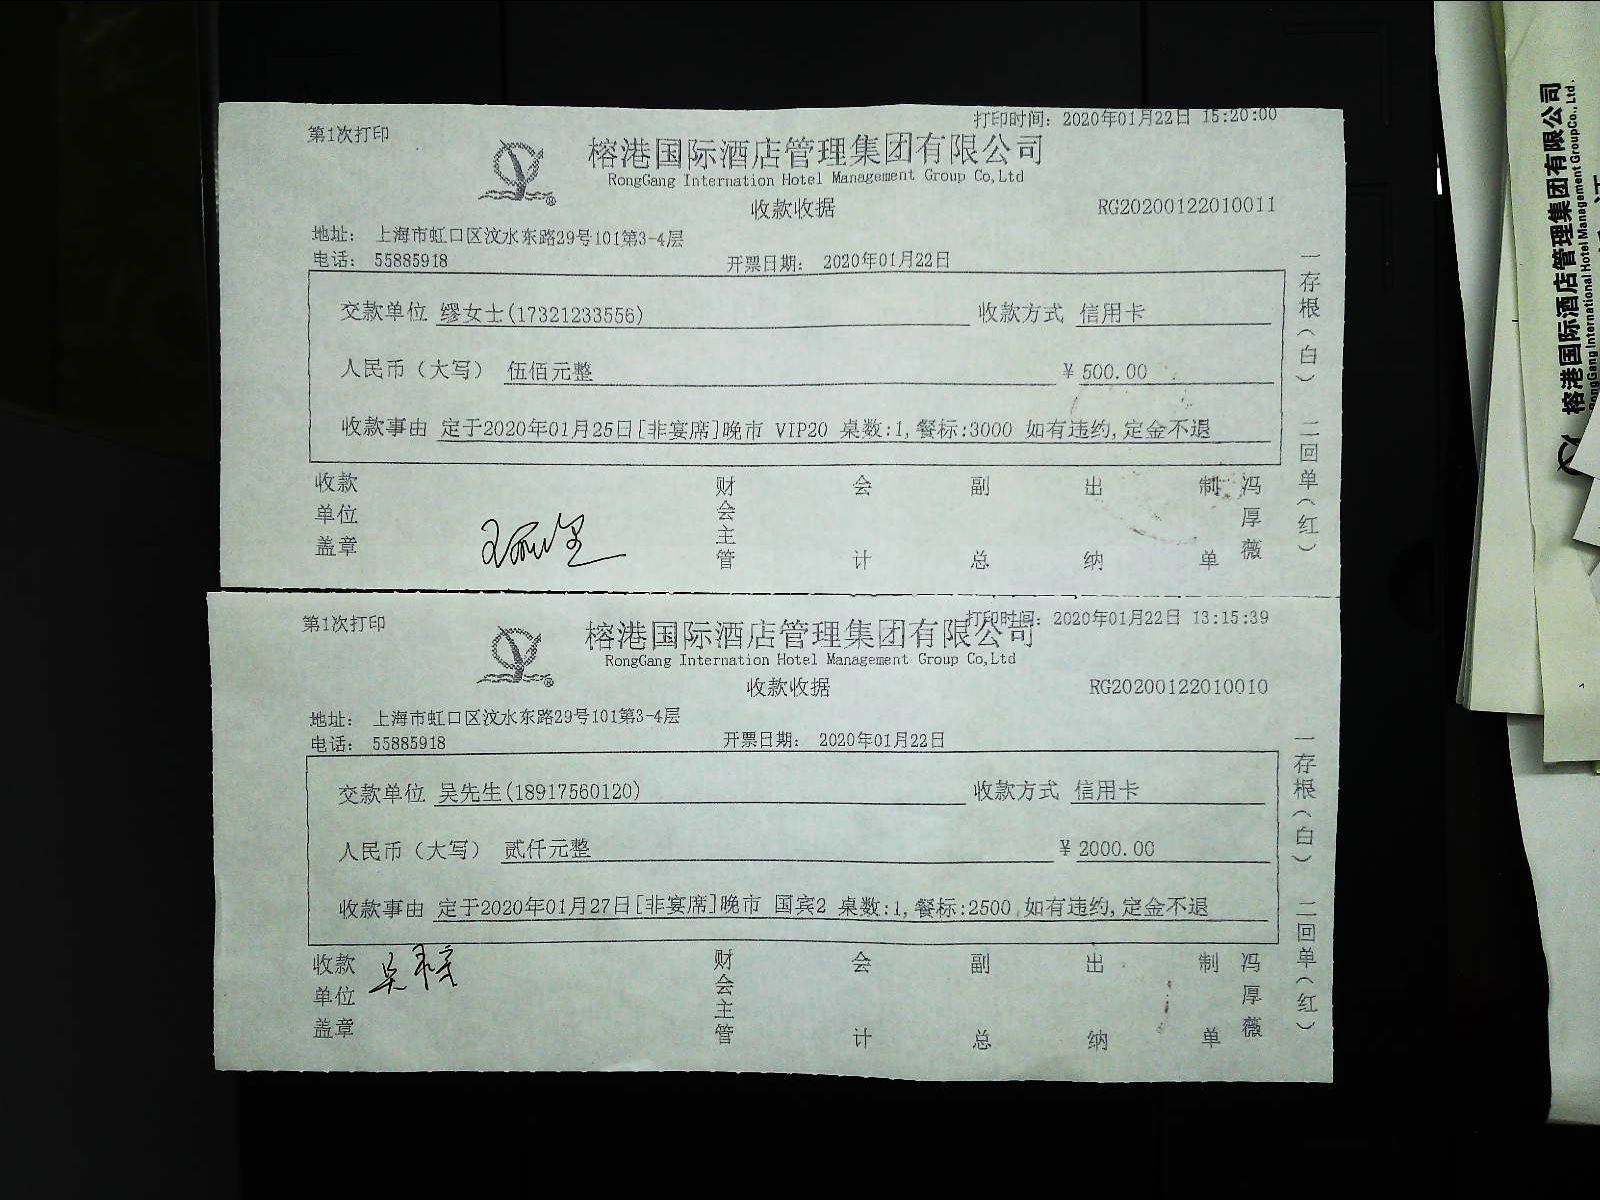 第1次打印
打印时间：2020年01月22日 15:20:00
榕港国际酒店管理集团有限公司
RongGang Internation Hotel Management Group Co,Ltd
收款收据
RG20200122010011
地址： 上海市虹口区汶水东路29号101第3-4层
电话： 55885918
开票日期： 2020年01月22日
交款单位 缪女士(17321233556)
收款方式 信用卡
人民币（大写） 伍佰元整
¥ 500.00
收款事由 定于2020年01月25日[非宴席]晚市 VIP20 桌数:1,餐标:3000 如有违约,定金不退
收款单位盖章
财会主管
会计
副总
出纳
制单
冯厚薇
一存根（白）
二回单（红）
第1次打印
打印时间：2020年01月22日 13:15:39
榕港国际酒店管理集团有限公司
RongGang Internation Hotel Management Group Co,Ltd
收款收据
RG20200122010010
地址： 上海市虹口区汶水东路29号101第3-4层
电话： 55885918
开票日期： 2020年01月22日
交款单位 吴先生(18917560120)
收款方式 信用卡
人民币（大写） 贰仟元整
¥ 2000.00
收款事由 定于2020年01月27日[非宴席]晚市 国宾2 桌数:1,餐标:2500 如有违约,定金不退
收款单位盖章
财会主管
会计
副总
出纳
制单
冯厚薇
一存根（白）
二回单（红）
榕港国际酒店管理集团有限公司
RongGang International Hotel Management GroupCo., Ltd.